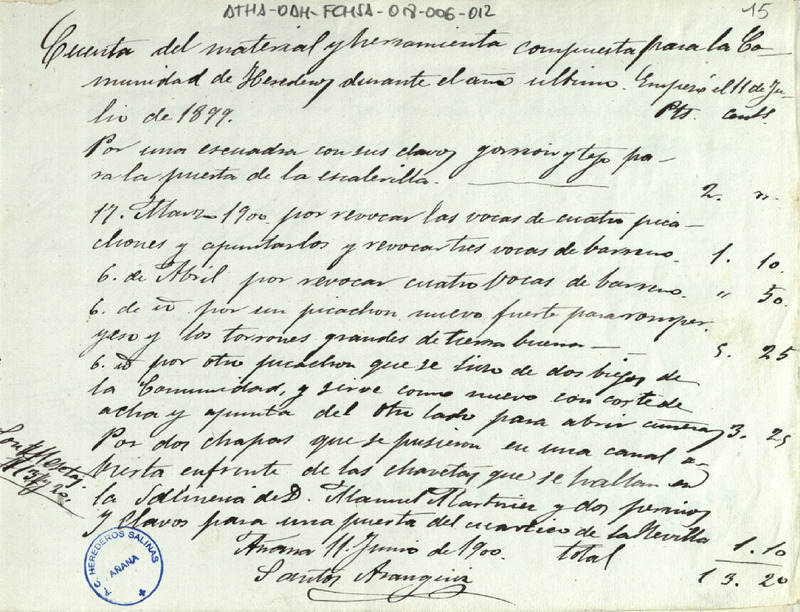 ATHA-DAH-FCHSA-018-006-012
15
Cuenta del material y herramienta compuesta para la Co-
munidad de Herederos durante el año ultimo. Empezó el 11 de Ju-
lio de 1899.
Pts. cents.
Por una escuadra con sus clavos gorrion y tejo pa-
ra la puerta de la escalerilla. 2. "
17. Marzo 1900 por revocar las vocas de cuatro pica-
chones y apuntarlos y revocar tres vocas de barreno. 1. 10.
6. de Abril por revocar cuatro vocas de barreno. " 50.
6. de id por un picachon nuevo fuerte para romper
yeso y los torrones grandes de tierra buena 5. 25
6. id por otro picachon que se hizo de dos biejos de
la Comunidad, y sirve como nuevo con corte de
acha y apunta del otro lado para abrir 3. 25
Por dos chapas que se pusieron en una canal a-
bierta enfrente de las chavetas que se hallan en
la Salinería de D. Manuel Martinez y dos pernios
y clavos para una puerta del cuartico de la Revilla 1. 10
Añana 11. Junio de 1900. total 13. 20
Santos Aranguiz
T. C. HEREDEROS SALINAS
AÑANA